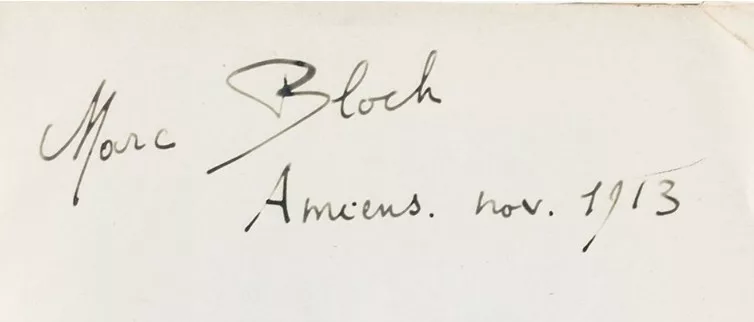 Marc Bloch
Amiens. nov. 1913